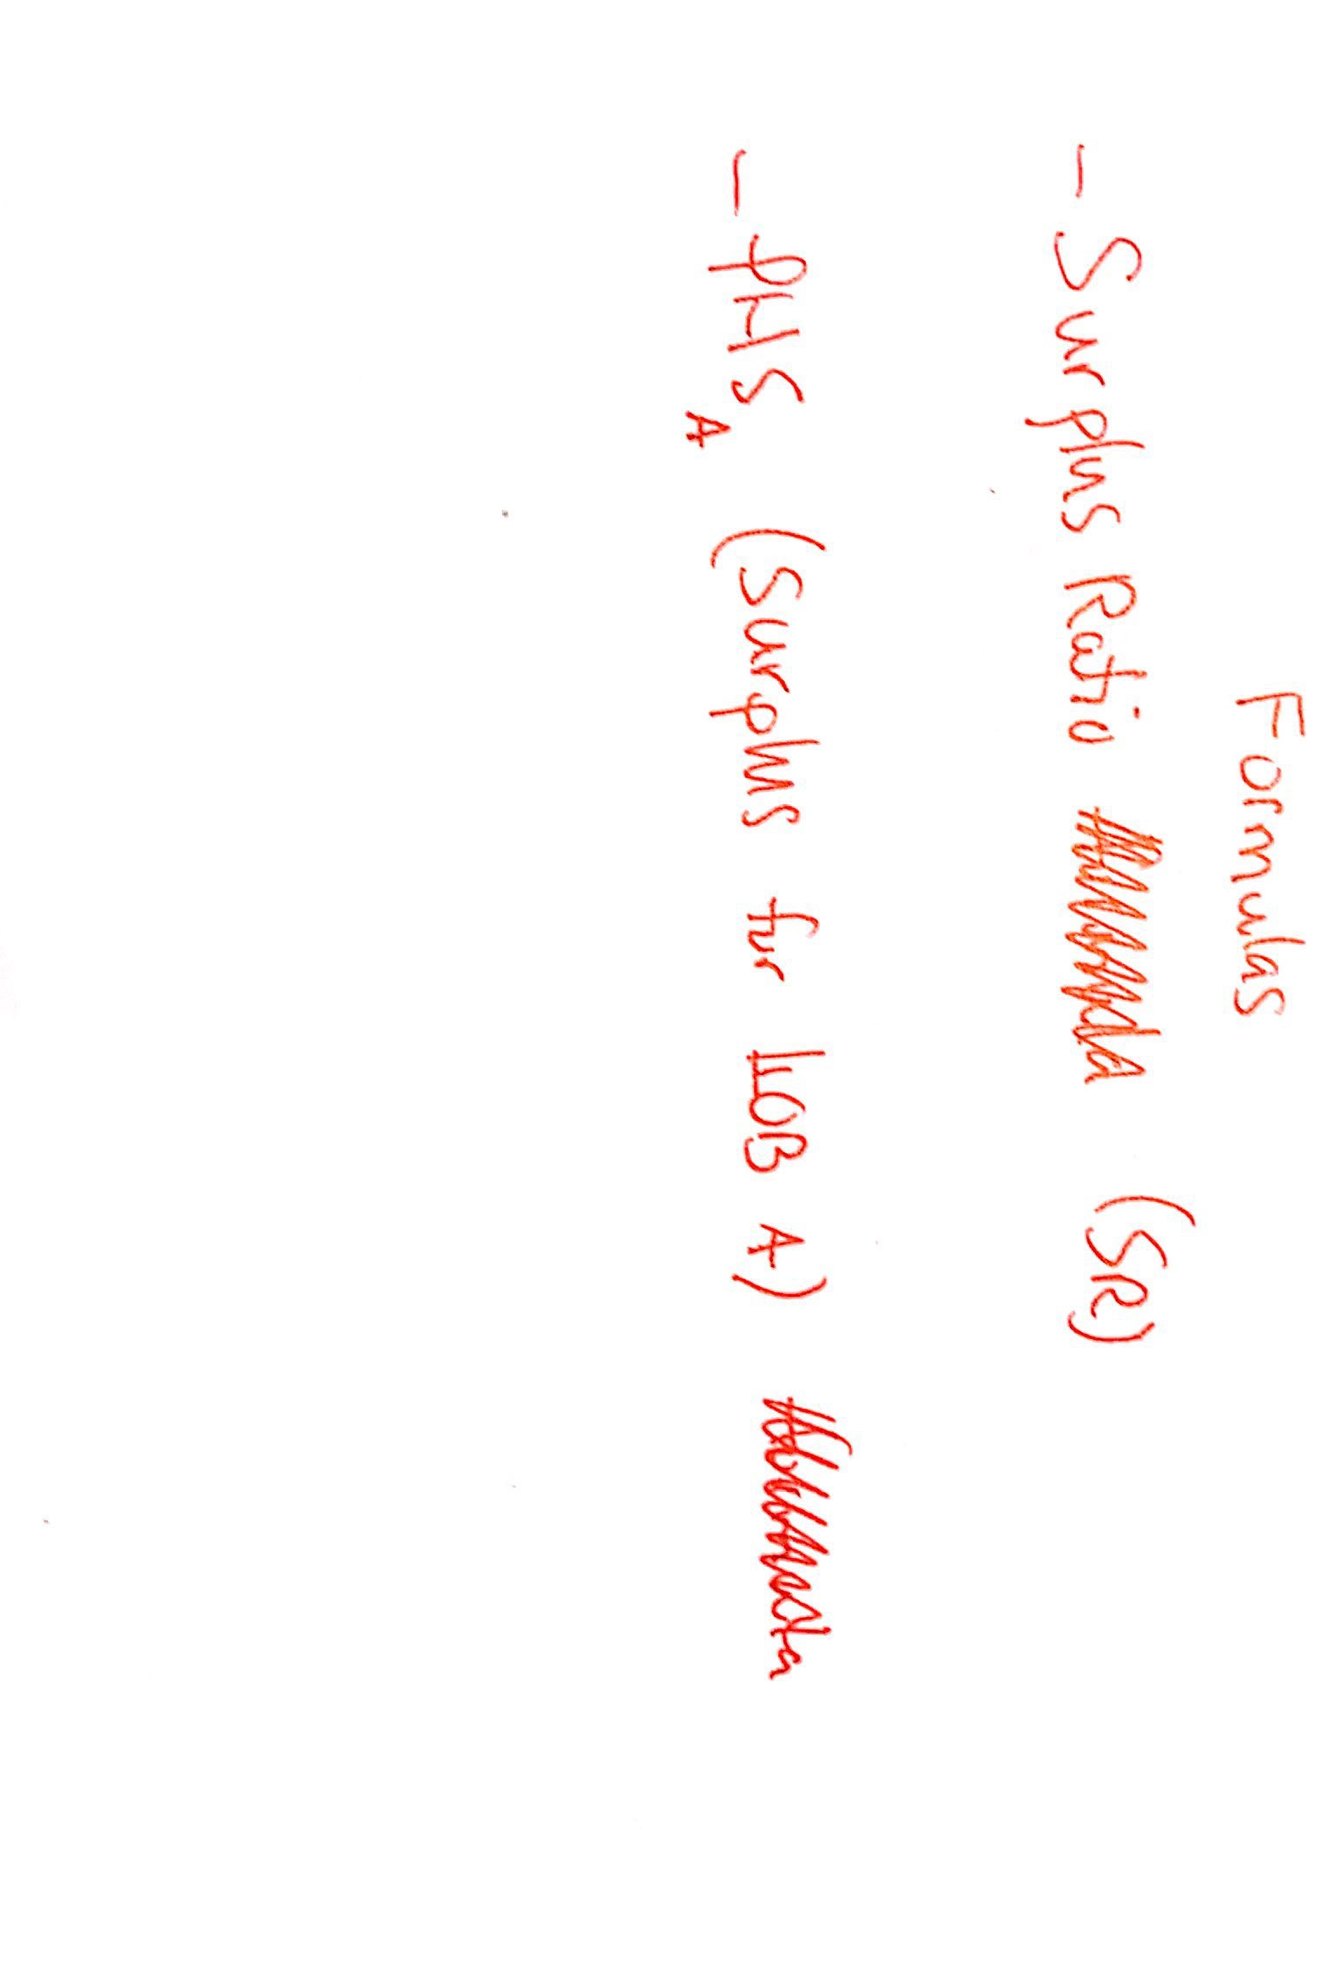 Formulas
- Surplus Ratio (SR)
- PHS A (Surplus for LOB A)